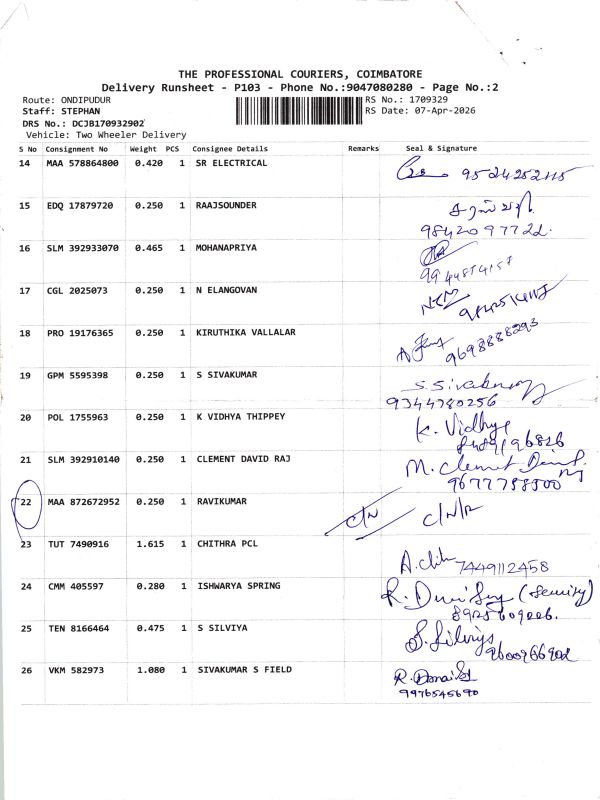 THE PROFESSIONAL COURIERS, COIMBATORE
Delivery Runsheet - P103 - Phone No.:9047080280 - Page No.:2
Route: ONDIPUDUR RS No.: 1709329
Staff: STEPHAN RS Date: 07-Apr-2026
DRS No.: DCJB170932902
Vehicle: Two Wheeler Delivery
S No Consignment No Weight PCS Consignee Details Remarks Seal & Signature
14 MAA 578864800 0.420 1 SR ELECTRICAL 9524252115
15 EDQ 17879720 0.250 1 RAAJSOUNDER
9842097722.
16 SLM 392933070 0.465 1 MOHANAPRIYA
9944874157
17 CGL 2025073 0.250 1 N ELANGOVAN
18 PRO 19176365 0.250 1 KIRUTHIKA VALLALAR 9698888293
19 GPM 5595398 0.250 1 S SIVAKUMAR S. Sivakumar
9344780256
20 POL 1755963 0.250 1 K VIDHYA THIPPEY K. Vidhya
21 SLM 392910140 0.250 1 CLEMENT DAVID RAJ M. Clement
9677758500
22 MAA 872672952 0.250 1 RAVIKUMAR C/N C/N/R
23 TUT 7490916 1.615 1 CHITHRA PCL A. 7449112458
24 CMM 405597 0.280 1 ISHWARYA SPRING R. (Security)
8925609006.
25 TEN 8166464 0.475 1 S SILVIYA S. Silviya
9600966902
26 VKM 582973 1.080 1 SIVAKUMAR S FIELD R.
9976545690